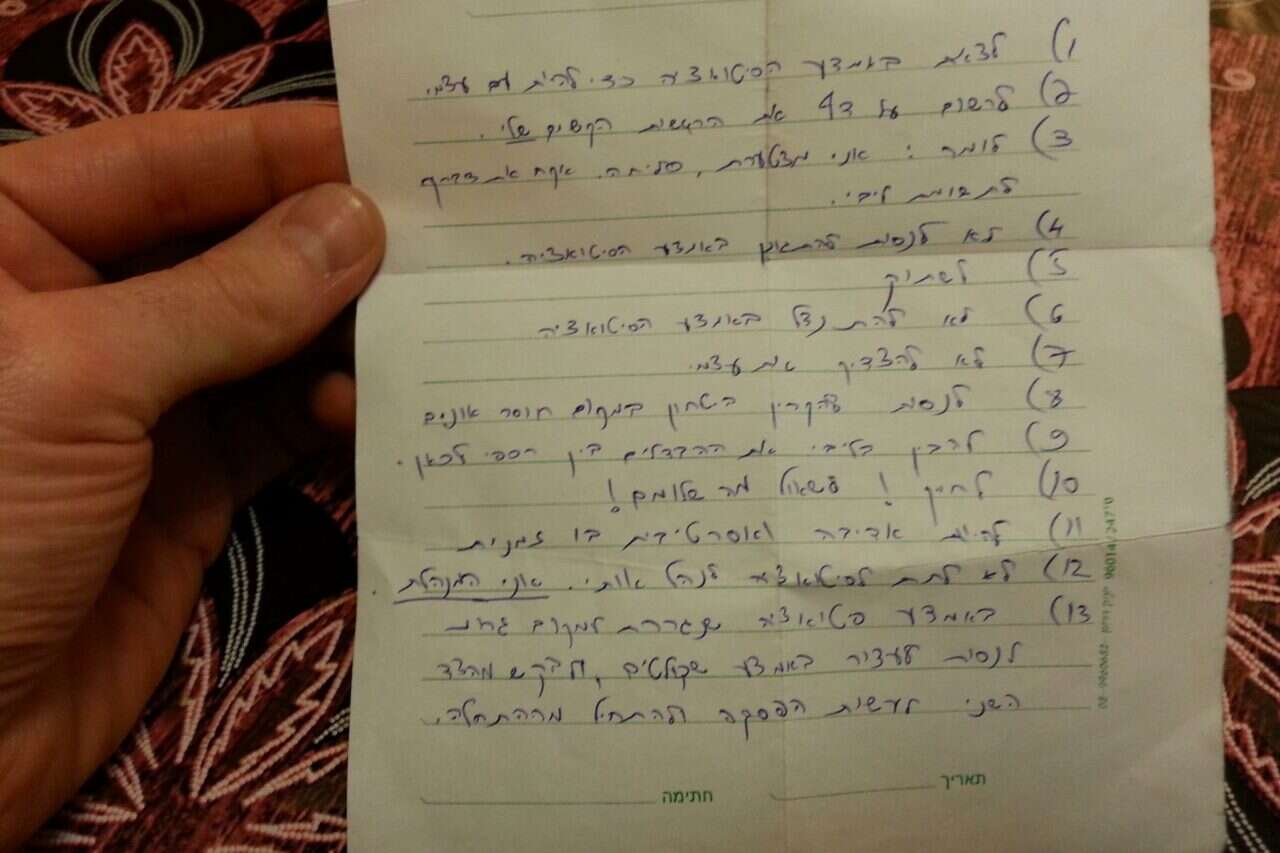 1) לצאת באמצע הסיטואציה כדי להיות עם עצמי.
2) לרשום על דף את הרגשות הקשים שלי.
3) לומר: אני מצטערת, סליחה. אקח את דבריך
לתשומת ליבי.
4) לא לנסות להתאפק באמצע הסיטואציה.
5) לשתוק
6) לא להתנצל באמצע הסיטואציה
7) לא להצדיק את עצמי
8) לנסות להקרין בטחון במקום חוסר אונים
9) להבין בליבי את ההבדלים בין רספי לכאן.
10) לחייך! לשאול מה שלומם!
11) להיות אדיבה ואסרטיבית בו זמנית
12) לא לתת לסיטואציה לנהל אותי. אני המנהלת.
13) באמצע סיטואציה שנגררת למקום
לנסות לעצור באמצע שקולטים, ולבקש מהצד
השני לעשות הפסקה ולהתחיל מההתחלה.
תאריך
חתימה